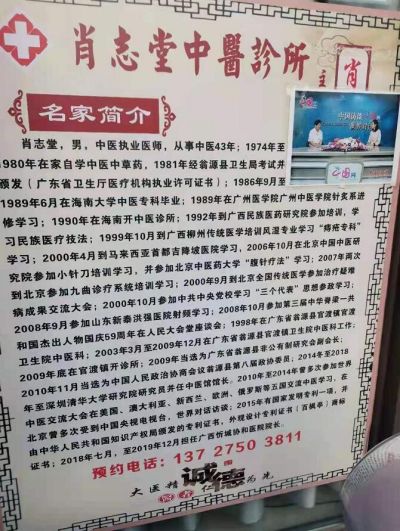 肖志堂中醫診所
肖
中国访谈
中国网
名家简介
肖志堂，男，中医执业医师，从事中医43年；1974年至
1980年在家自学中医中草药，1981年经翁源县卫生局考试并
颁发（广东省卫生厅医疗机构执业许可证书）；1986年9月至
1989年6月在海南大学中医专科毕业；1989年在广州医学院广州中医学院针炙系进
修学习；1990年在海南开中医诊所；1992年到广西民族医药研究院参加培训，学
习民族医疗技法；1999年10月到广西柳州传统医学培训风湿专业学习“痔疮专科”
学习；2000年4月到马来西亚首都吉隆坡医院学习，2006年10月在北京中国中医研
究院参加小针刀培训学习，并参加北京中医药大学“腹针疗法”学习；2007年两次
到北京参加九曲诊疗系统培训学习；2000年9月到北京全国传统医学参加治疗疑难
病成果交流大会；2000年10月参加中共中央党校学习“三个代表”思想参政学习；
2008年9月参加山东新泰洪强医院射频学习；2008年10月参加第三届中华脊梁一共
和国杰出人物国庆59周年在人民大会堂座谈会；1998年在广东省翁源县官渡镇官渡
卫生院中医科；2003年3月至2009年12月在广东省翁源县官渡镇卫生院中医科工作；
2009年底在官渡镇开诊所；2009年当选为广东省翁源县非公有制研究会副会长；
2010年11月当选为中国人民政治协商会议翁源县第八届政协委员；2014冬至2018
年至深圳清华大学研究院研究员并任中医馆馆长。2010年至2014年曾多次参加世界
中医交流大会在美国、澳大利亚、新西兰、欧洲、俄罗斯等五国交流中医学习，在
北京曾多次受到中国央视电视台，世界对话访谈；2015年有国家发明专利一项，并
由中华人民共和国知识产权局颁发的专利证书，外观设计专利证书（百枫亭）商标
证书；2018年七月，至2019年12月担任广西忻城协和医院院长。
预约电话：137 2750 3811
大医精诚 仁德为先